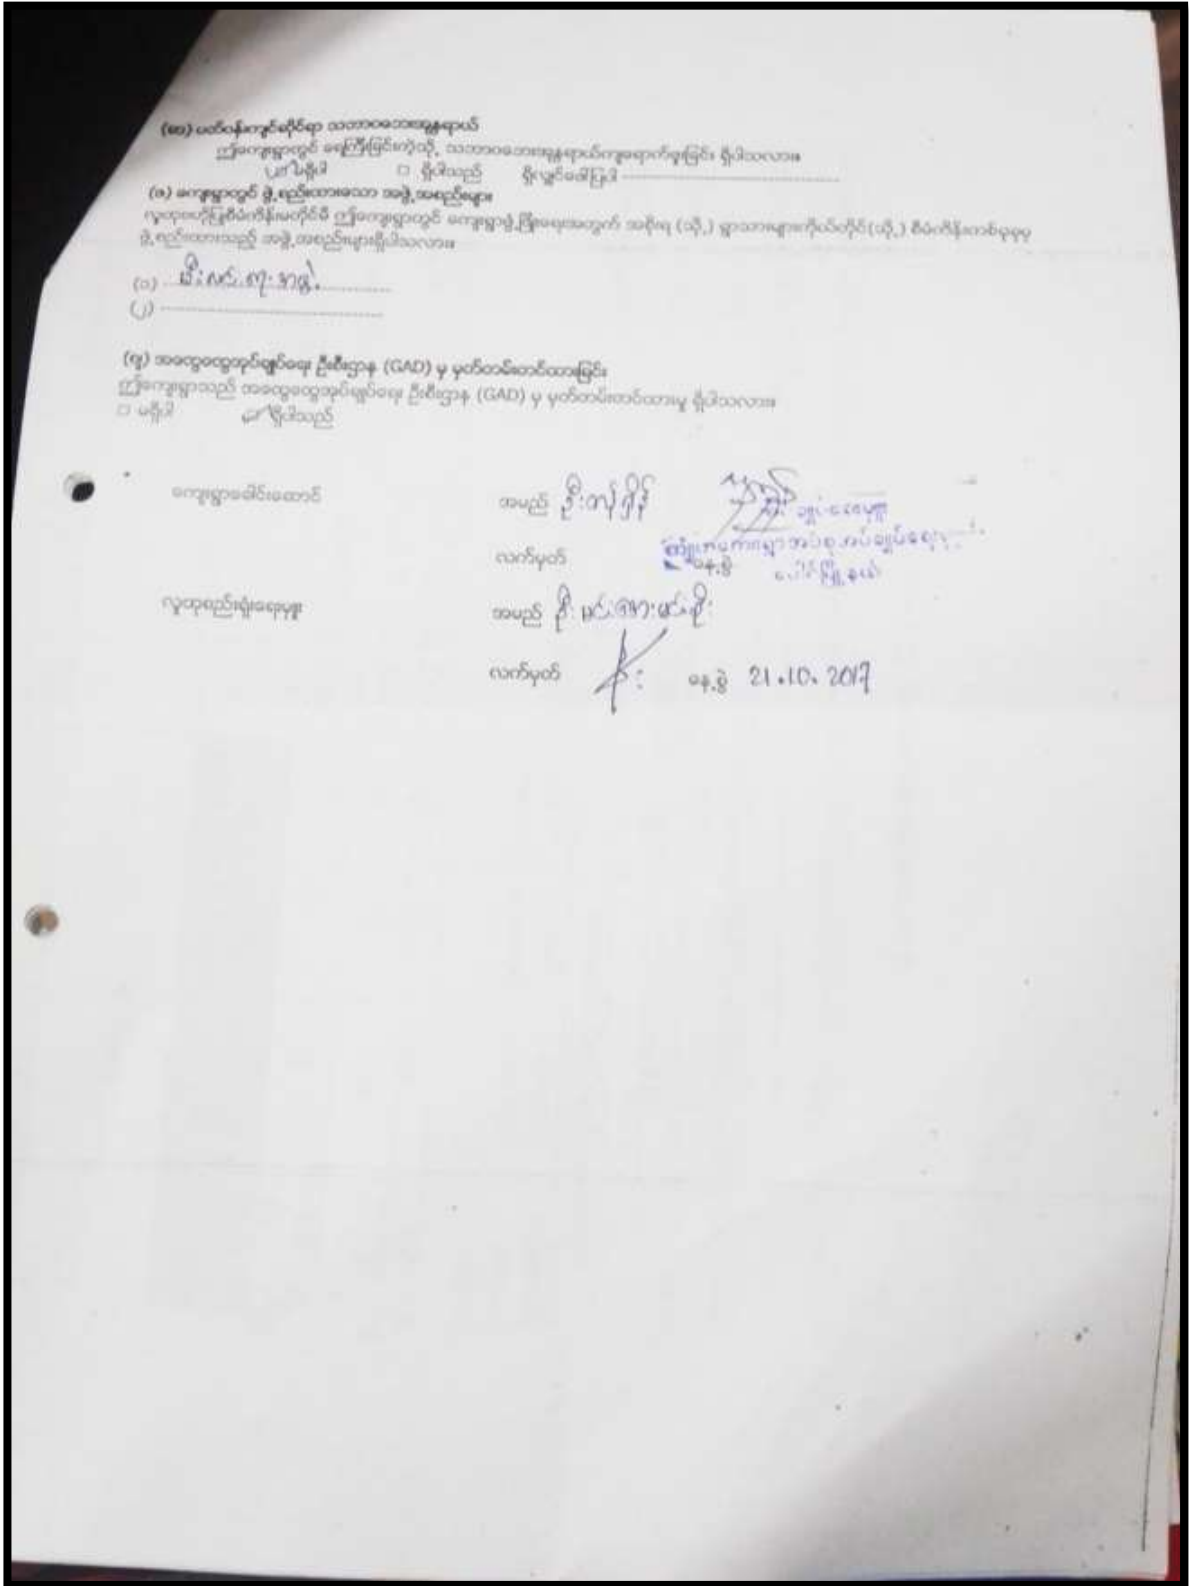 (စာ) ပတ်ဝန်းကျင်ဆိုင်ရာ သဘာဝဘေးအန္တရာယ်
ဤကျေးရွာတွင် ရေကြီးခြင်းကဲ့သို့ သဘာဝဘေးအန္တရာယ်ကျရောက်ဖူးခြင်း ရှိပါသလား။
☑ မရှိပါ □ ရှိပါသည် ရှိလျှင်ဖော်ပြပါ
(ဖ) ကျေးရွာတွင် ဖွဲ့စည်းထားသော အဖွဲ့အစည်းများ
လူထုဗဟိုပြုစီမံကိန်းမတိုင်မီ ဤကျေးရွာတွင် ကျေးရွာဖွံ့ဖြိုးရေးအတွက် အစိုးရ (သို့) ရွာသားများကိုယ်တိုင် (သို့) စီမံကိန်းတစ်ခုခုမှ
ဖွဲ့စည်းထားသည့် အဖွဲ့အစည်းများရှိပါသလား။
(၁) မီးလင်းရေးအဖွဲ့
(၂)
(ဗျ) အထွေထွေအုပ်ချုပ်ရေး ဦးစီးဌာန (GAD) မှ မှတ်တမ်းတင်ထားခြင်း
ဤကျေးရွာသည် အထွေထွေအုပ်ချုပ်ရေး ဦးစီးဌာန (GAD) မှ မှတ်တမ်းတင်ထားမှု ရှိပါသလား။
□ မရှိပါ ☑ ရှိပါသည်
ကျေးရွာခေါင်းဆောင် အမည် ဦး
အုပ်ချုပ်ရေးမှူး
လက်မှတ် နေ့စွဲ ကျေးရွာအုပ်စု အုပ်ချုပ်ရေး
ပေါင်မြို့နယ်
လူထုစည်းရုံးရေးမှူး အမည် ဦးမင်းအေးမင်းစိုး
လက်မှတ် နေ့စွဲ 21.10.2017